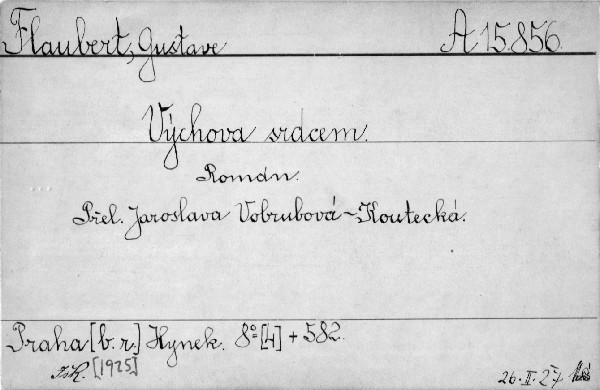 Flaubert, Gustave A 15.856
Výchova srdcem.
Román.
Přel. Jaroslava Vobrubová-Koutecká.
Praha [b. r.] Hynek. 8° [4] + 582.
[1925] 26. II. 27